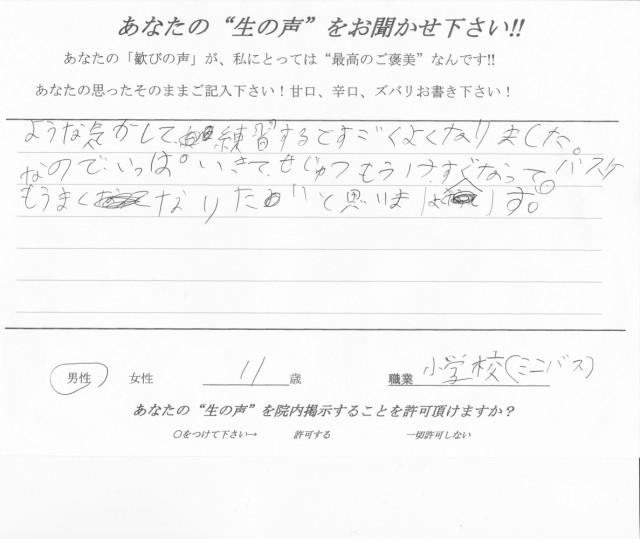 あなたの“生の声”をお聞かせ下さい!!
あなたの「歓びの声」が、私にとっては“最高のご褒美”なんです!!
あなたの思ったそのままご記入下さい！甘口、辛口、ズバリお書き下さい！
ような気がして、練習するとすごくよくなりました。
なので、いっぱいきて、せじゅつもうけ、すぐなって。バスケ
もうまくなりたいと思います。
男性 女性 11 歳 職業 小学校(ミニバス)
あなたの“生の声”を院内掲示することを許可頂けますか？
○をつけて下さい→ 許可する 一切許可しない